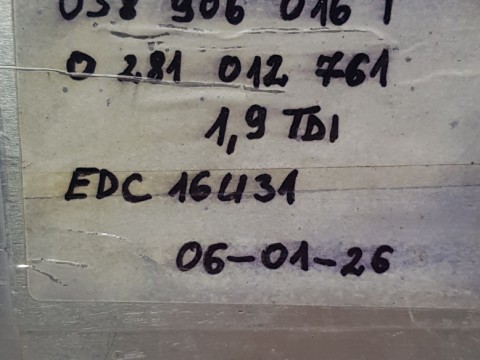 038 906 016 T
0 281 012 761
1,9 TDI
EDC 16U31
06-01-26